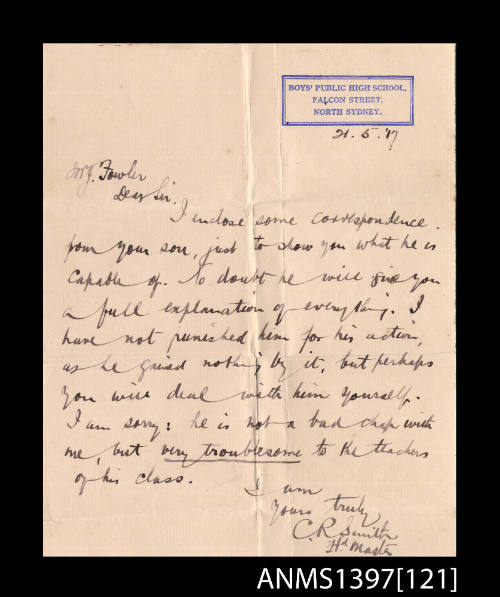 BOYS' PUBLIC HIGH SCHOOL,
FALCON STREET,
NORTH SYDNEY.
21.5.17
Fowler
Dear Sir.
I enclose some correspondence
from your son, just to show you what he is
capable of. No doubt he will give you
a full explanation of everything. I
have not punished him for his action,
as he gained nothing by it, but perhaps
you will deal with him yourself.
I am sorry: he is not a bad chap with
me, but very troublesome to the teachers
of his class.
I am
Yours truly,
C.R. Smith
Hd Master
ANMS1397[121]